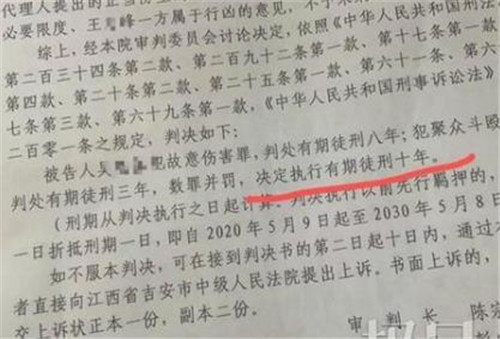 代理人提出的正当防
必要限度、王 峰一方属于行凶的意见，不予
综上，经本院审判委员会讨论决定，依照《中华人民共和国刑法
第二百三十四条第二款、第二百九十二条第一款、第十七条第
第四款、第二十条第二款、第二十五条第一款、第六十
七条第三款、第六十九条第一款，《中华人民共和国刑事诉讼法》
二百零一条之规定，判决如下：
被告人吴 犯故意伤害罪，判处有期徒刑八年；犯聚众斗殴
判处有期徒刑三年，数罪并罚，决定执行有期徒刑十年。
（刑期从判决执行之日起计算。判决执行以前先行羁押的，
一日折抵刑期一日，即自2020年5月9日起至2030年5月8日
如不服本判决，可在接到判决书的第二日起十日内，通过
者直接向江西省吉安市中级人民法院提出上诉。书面上诉的，
交上诉状正本一份，副本二份。
审 判 长 陈